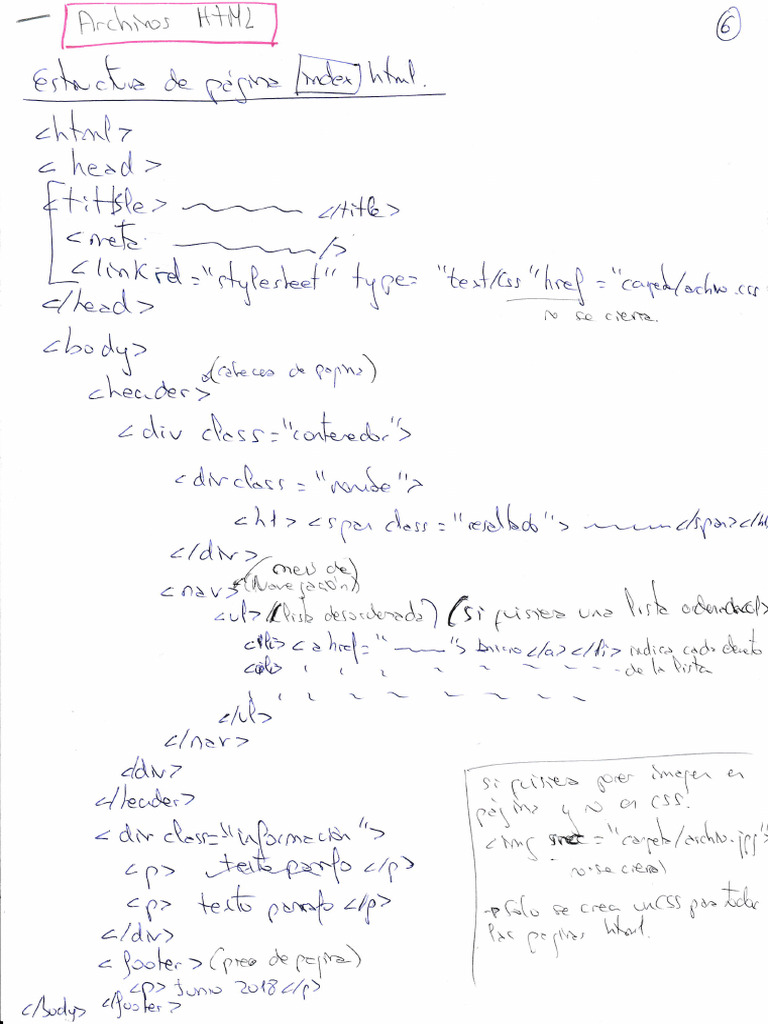 Archivos HTML
6
Estructura de página index html.
<html>
<head>
<tittle> </title>
<meta />
<link rel="stylesheet" type="text/css" href="carpeta/archivo.css
no se cierra.
</head>
<body>
(cabecera de pagina)
<header>
<div class="contenedor">
<div class="
<h1> <span class="resaltado"> </span></h
</div>
(menu de
<nav> (Navegación)
<ul> (lista desordenada) (si quisiera una lista ordenada
<li> <a href=" "> Inicio</a></li> indica cada elemento
<li> de la lista
</ul>
</nav>
</div>
</header>
<div class="información">
<p> texto parrafo </p>
<p> texto parrafo </p>
</div>
<footer> (pie de pagina)
<p> Junio 2018 </p>
</body> </footer>
si quisiera poner imagen en
página y no en CSS.
<img = "carpeta/archivo.jpg">
no se cierra)
Solo se crea un CSS para todas
las paginas html.